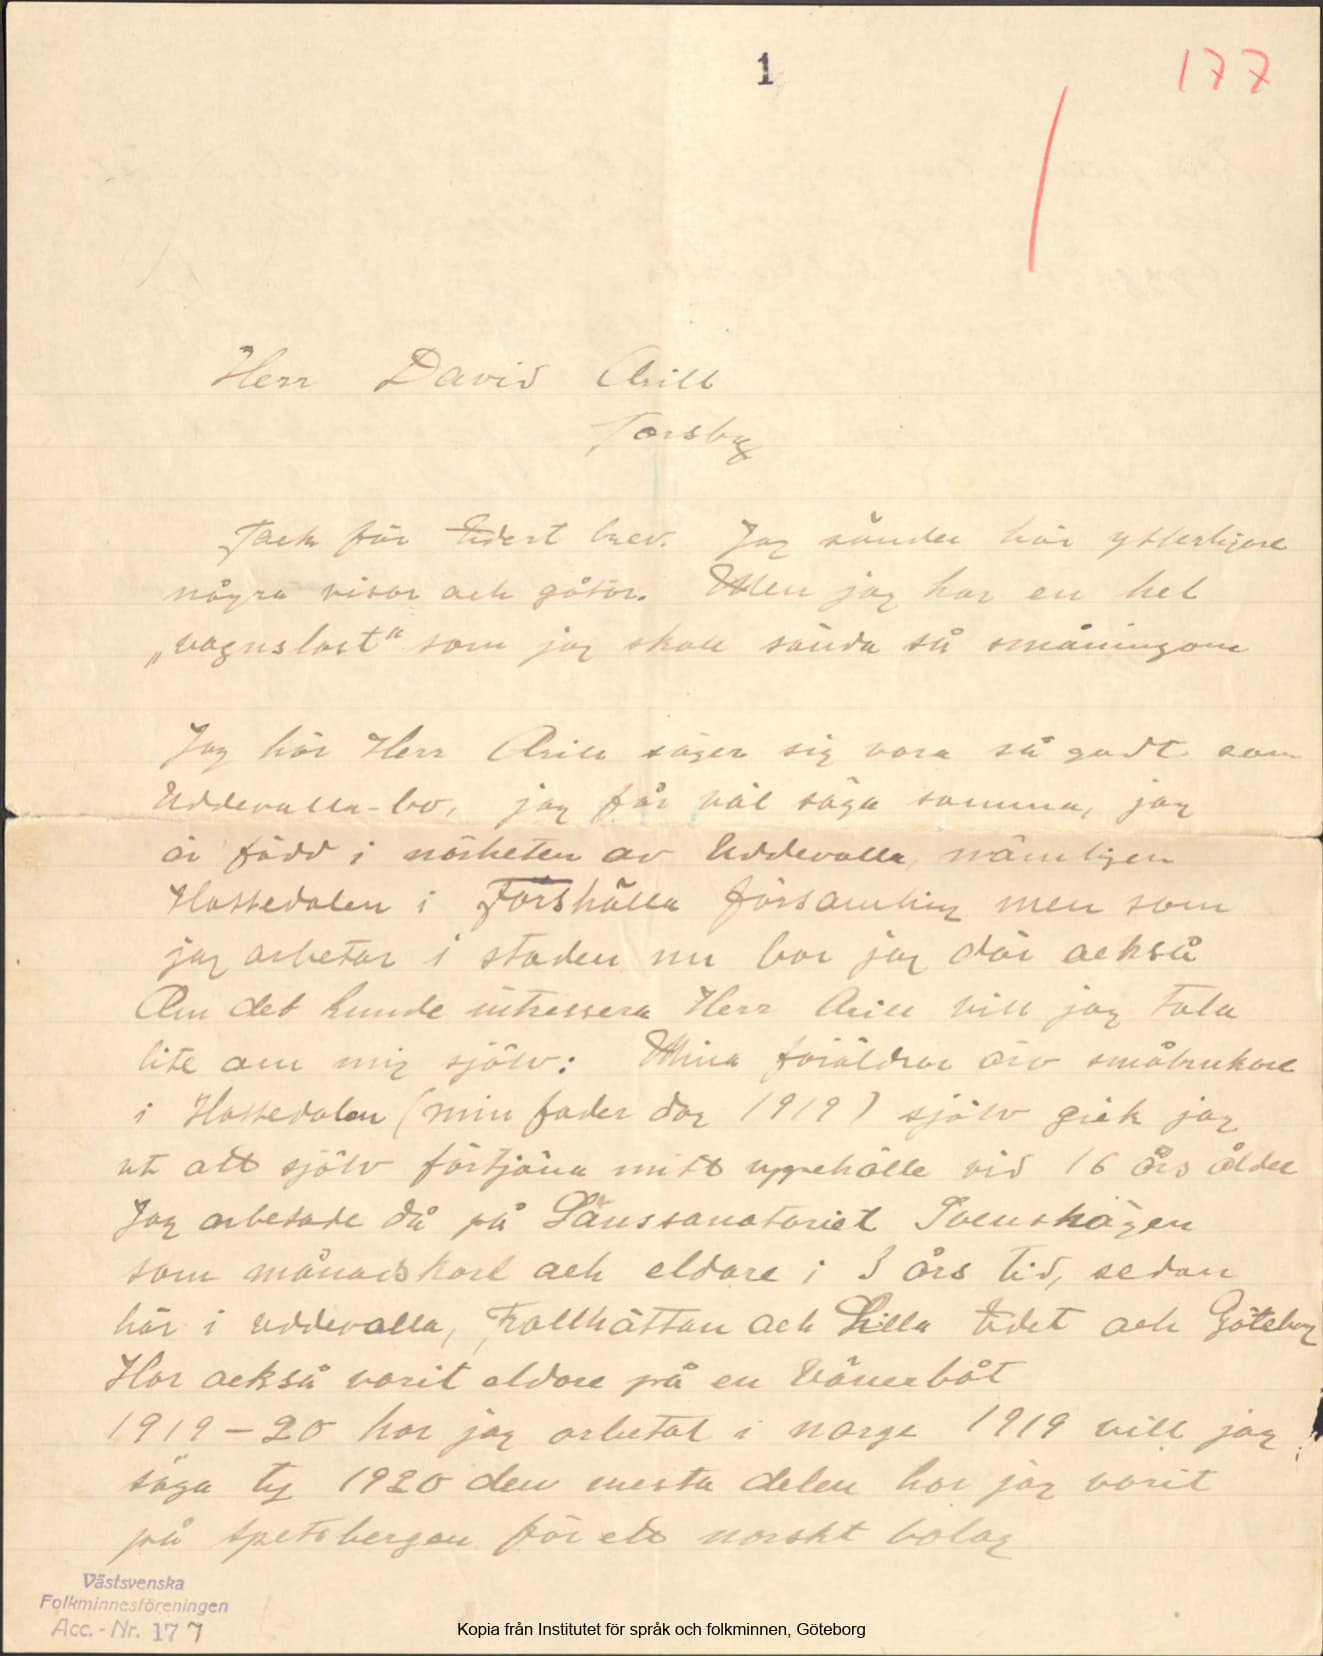 1
177
Herr David Arill
Torsby
Tack för Edert brev. Jag sänder här ytterligare
några visor och gåtor. Men jag har en hel
„vagnslast“ som jag skall sända så småningom
Jag hör Herr Arill säger sig vara så godt som
Uddevalla-bo, jag får väl säga samma, jag
är född i närheten av Uddevalla, nämligen
Hassedalen i Forshälla församling men som
jag arbetar i staden nu bor jag där också
Om det kunde intressera Herr Arill vill jag tala
lite om mig själv: Mina föräldrar äro småbrukare
i Hassedalen (min fader dog 1919) själv gick jag
ut att själv förtjäna mitt uppehälle vid 16 års ålder
Jag arbetade då på Länssanatoriet Svenshögen
som månadskarl och eldare i 3 års tid, sedan
här i Uddevalla, Trollhättan och Lilla Edet och Göteborg
Har också varit eldare på en Vänerbåt
1919-20 har jag arbetat i Norge 1919 vill jag
säga ty 1920 den mesta delen har jag varit
på Spetsbergen för ett norskt bolag
Västsvenska
Folkminnesföreningen
Acc.-Nr. 177
Kopia från Institutet för språk och folkminnen, Göteborg